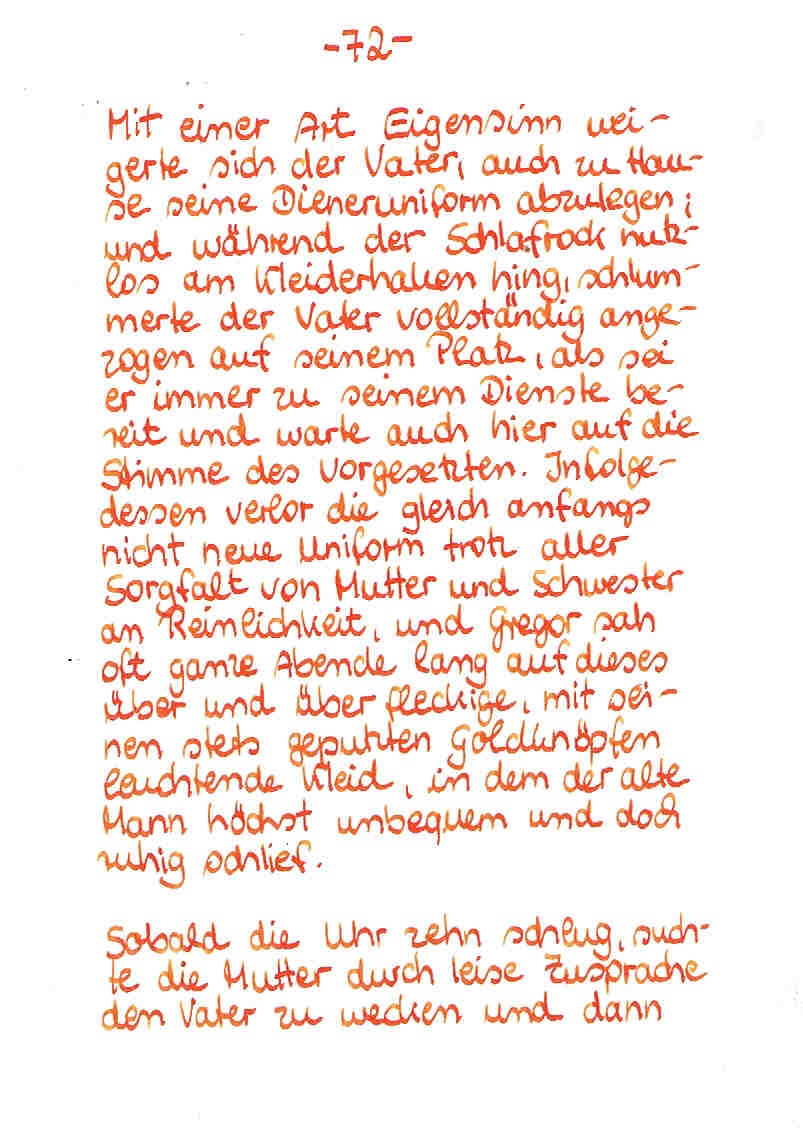 -72-
Mit einer Art Eigensinn wei-
gerte sich der Vater, auch zu Hau-
se seine Dieneruniform abzulegen;
und während der Schlafrock nutz-
los am Kleiderhaken hing, schlum-
merte der Vater vollständig ange-
zogen auf seinem Platz, als sei
er immer zu seinem Dienste be-
reit und warte auch hier auf die
Stimme des Vorgesetzten. Infolge-
dessen verlor die gleich anfangs
nicht neue Uniform trotz aller
Sorgfalt von Mutter und Schwester
an Reinlichkeit, und Gregor sah
oft ganze Abende lang auf dieses
über und über fleckige, mit sei-
nen stets geputzten Goldknöpfen
leuchtende Kleid, in dem der alte
Mann höchst unbequem und doch
ruhig schlief.
Sobald die Uhr zehn schlug, such-
te die Mutter durch leise Zusprache
den Vater zu wecken und dann